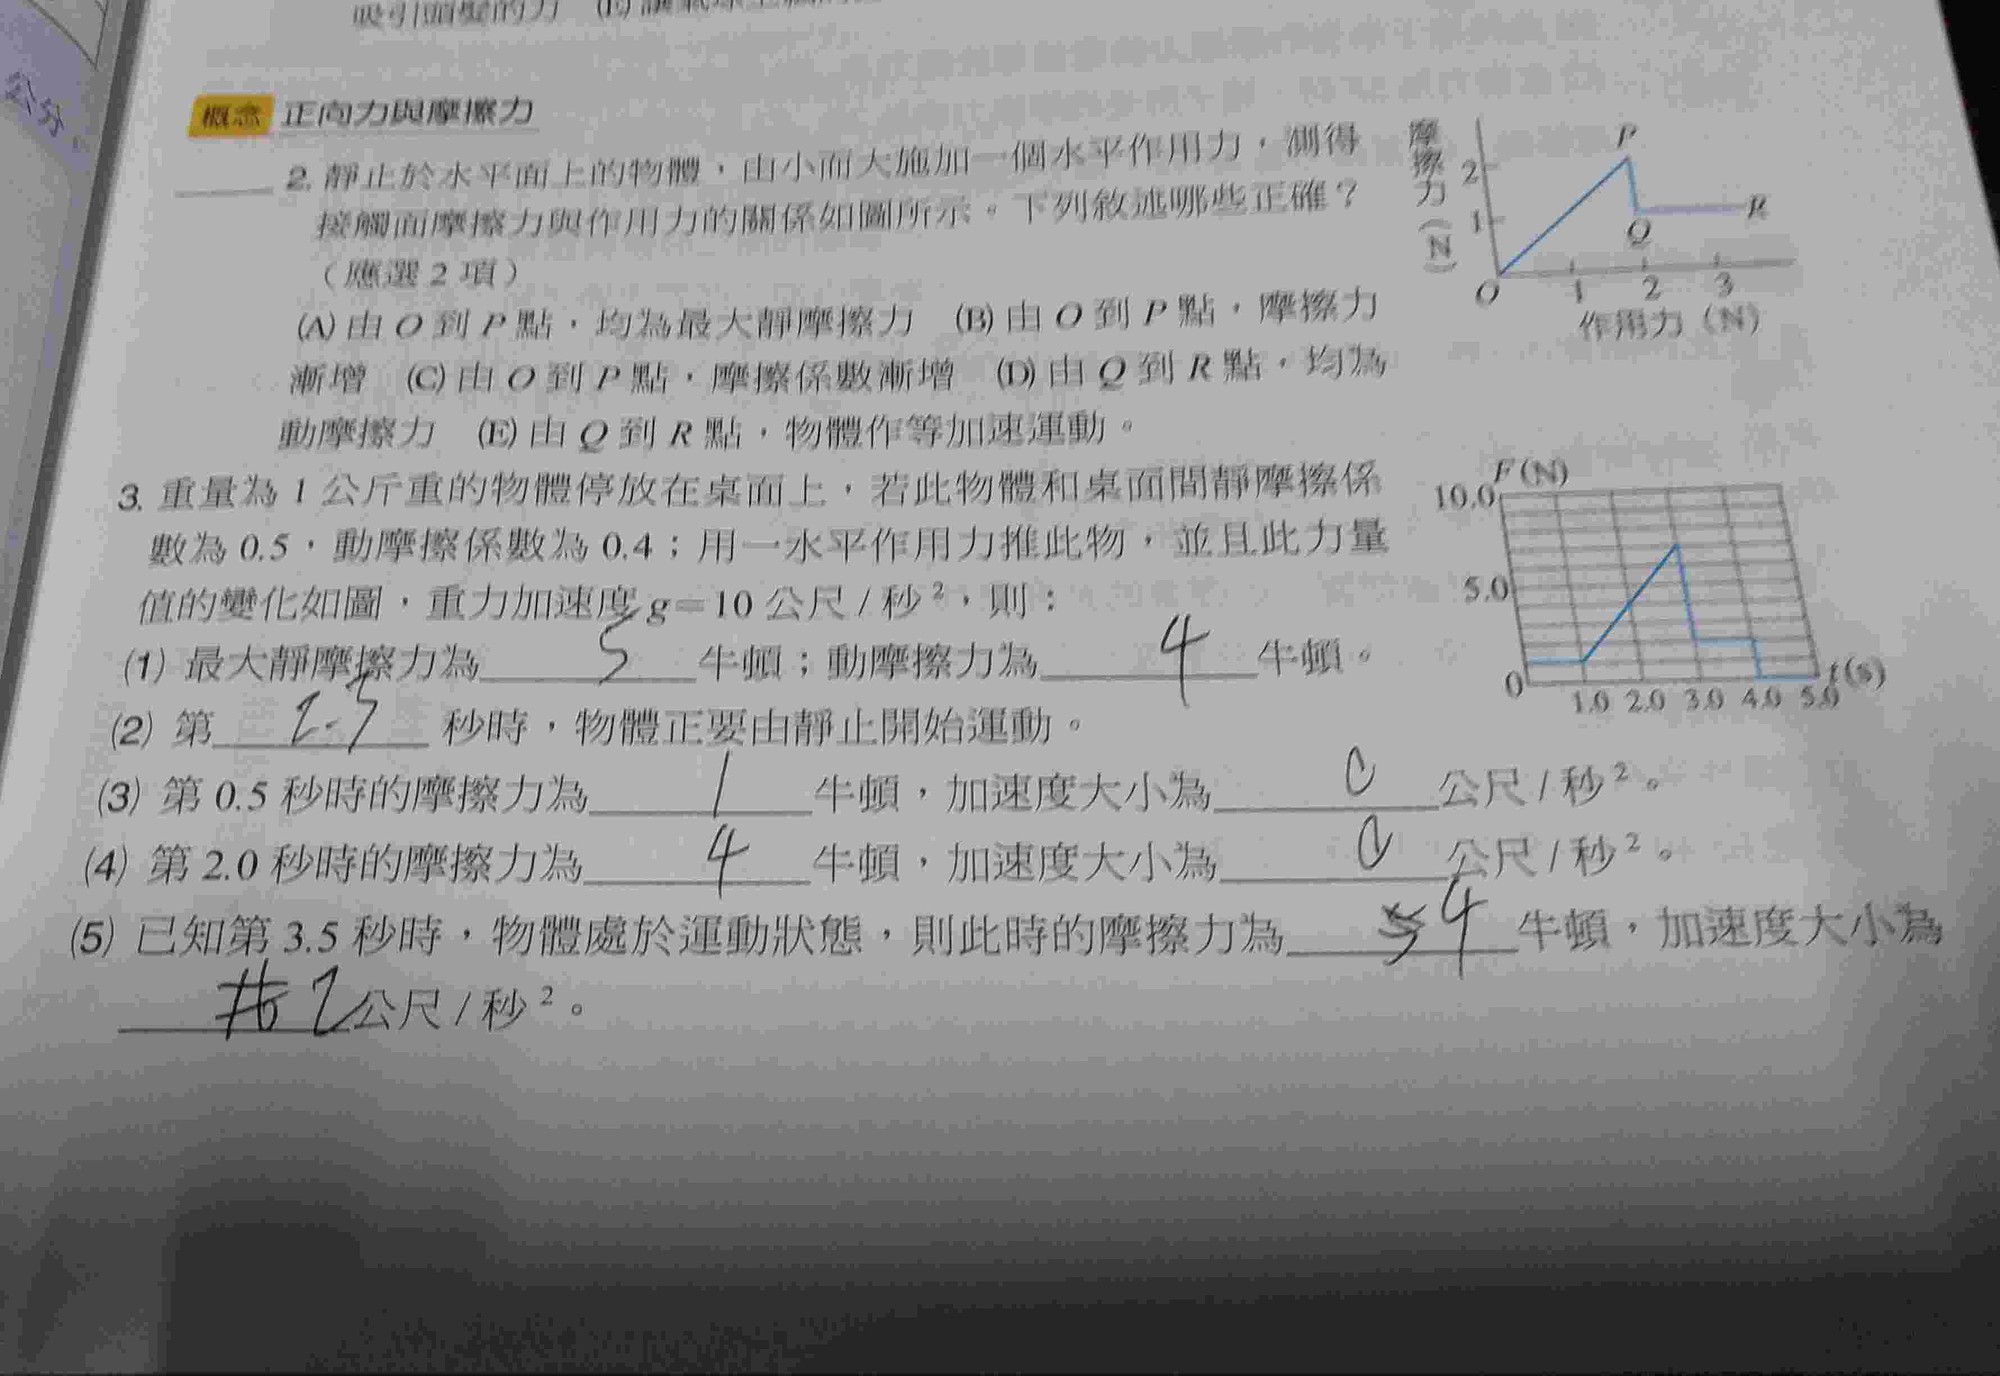 公分。
吸引頭髮的力
概念 正向力與摩擦力
2. 靜止於水平面上的物體，由小而大施加一個水平作用力，測得
接觸面摩擦力與作用力的關係如圖所示。下列敘述哪些正確？
（應選 2 項）
(A) 由 O 到 P 點，均為最大靜摩擦力 (B) 由 O 到 P 點，摩擦力
漸增 (C) 由 O 到 P 點，摩擦係數漸增 (D) 由 Q 到 R 點，均為
動摩擦力 (E) 由 Q 到 R 點，物體作等加速運動。
摩擦力(N)
2
1
O
P
Q
R
1 2 3
作用力（N）
3. 重量為 1 公斤重的物體停放在桌面上，若此物體和桌面間靜摩擦係
數為 0.5，動摩擦係數為 0.4；用一水平作用力推此物，並且此力量
值的變化如圖，重力加速度 g=10 公尺/秒²，則：
(1) 最大靜摩擦力為 5 牛頓；動摩擦力為 4 牛頓。
(2) 第 2.5 秒時，物體正要由靜止開始運動。
(3) 第 0.5 秒時的摩擦力為 1 牛頓，加速度大小為 0 公尺/秒²。
(4) 第 2.0 秒時的摩擦力為 4 牛頓，加速度大小為 0 公尺/秒²。
(5) 已知第 3.5 秒時，物體處於運動狀態，則此時的摩擦力為 4 牛頓，加速度大小為
2 公尺/秒²。
F(N)
10.0
5.0
0
1.0 2.0 3.0 4.0 5.0
t(s)